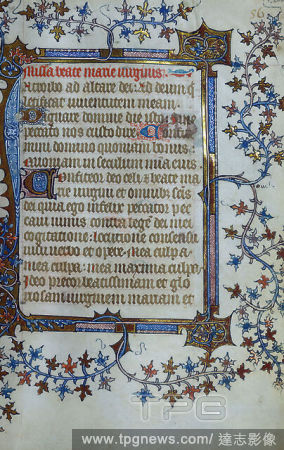 Missa beate marie virginis.
Introibo ad altare dei. Ad deum q
letificat iuventutem meam
peccato nos custodire
mini domino quoniam bonus.
quoniam in seculum mia eius.
Confiteor deo celi et beate ma
rie virgini et omnibus sc̄is
dei quia ego infelix peccator pec
cavi nimis contra legē dei mei
cogitatione: locutione consensu
visu verbo et opere. mea culpa
mea culpa: mea maxima culpa.
Ideo precor beatissimam et glo
riosam virginem mariam et
TPG
www.tpgnews.com/ 達志影像